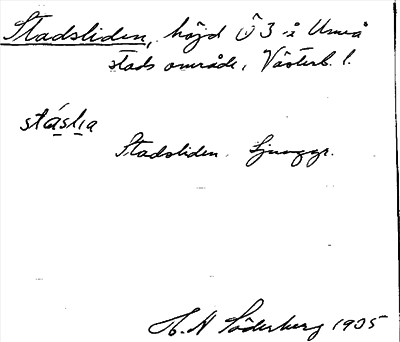 Stadsliden, höjd Ö 3 i Umeå
stads område, Västerb. l.
stáslıa
Stadsliden. Ljunggr.
H. A Söderberg 1905